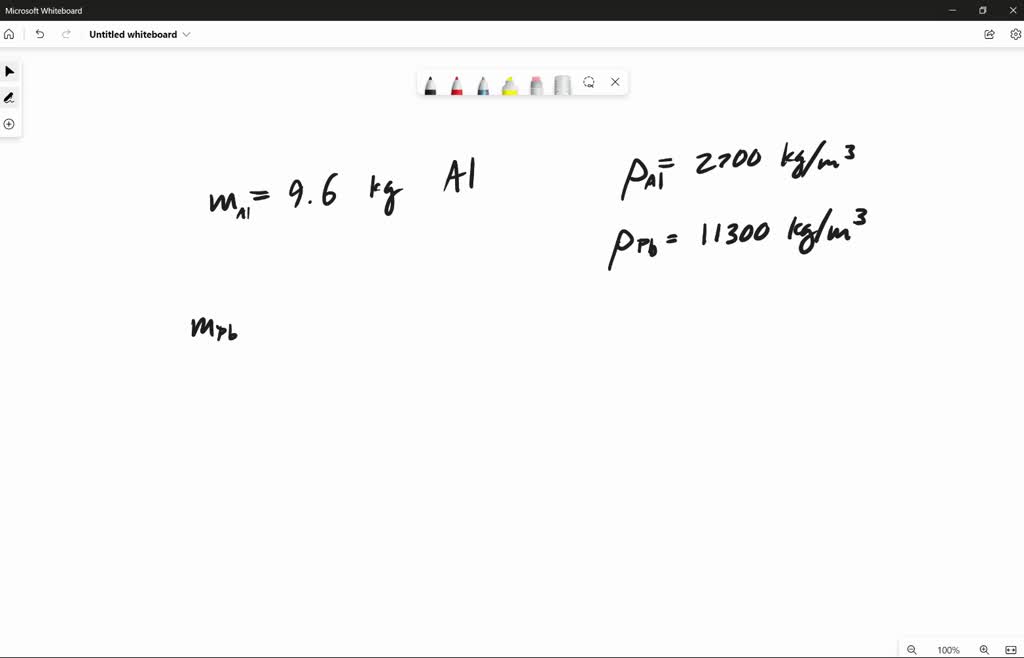 Microsoft Whiteboard
Untitled whiteboard
m_Al = 9.6 kg Al
ρ_Al = 2700 kg/m³
ρ_Pb = 11300 kg/m³
m_Pb
100%